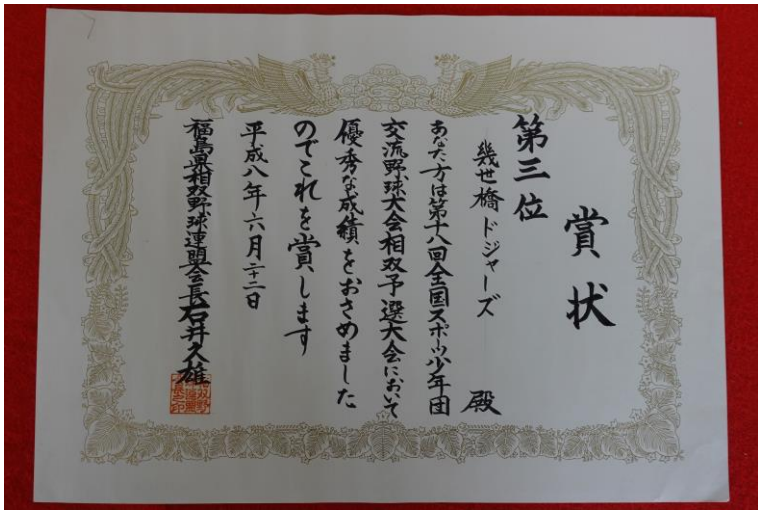 賞状
第三位
幾世橋ドジャーズ 殿
あなた方は第十八回全国スポーツ少年団
交流野球大会相双予選大会において
優秀な成績をおさめました
のでこれを賞します
平成八年六月二十二日
福島県相双野球連盟会長石井久雄